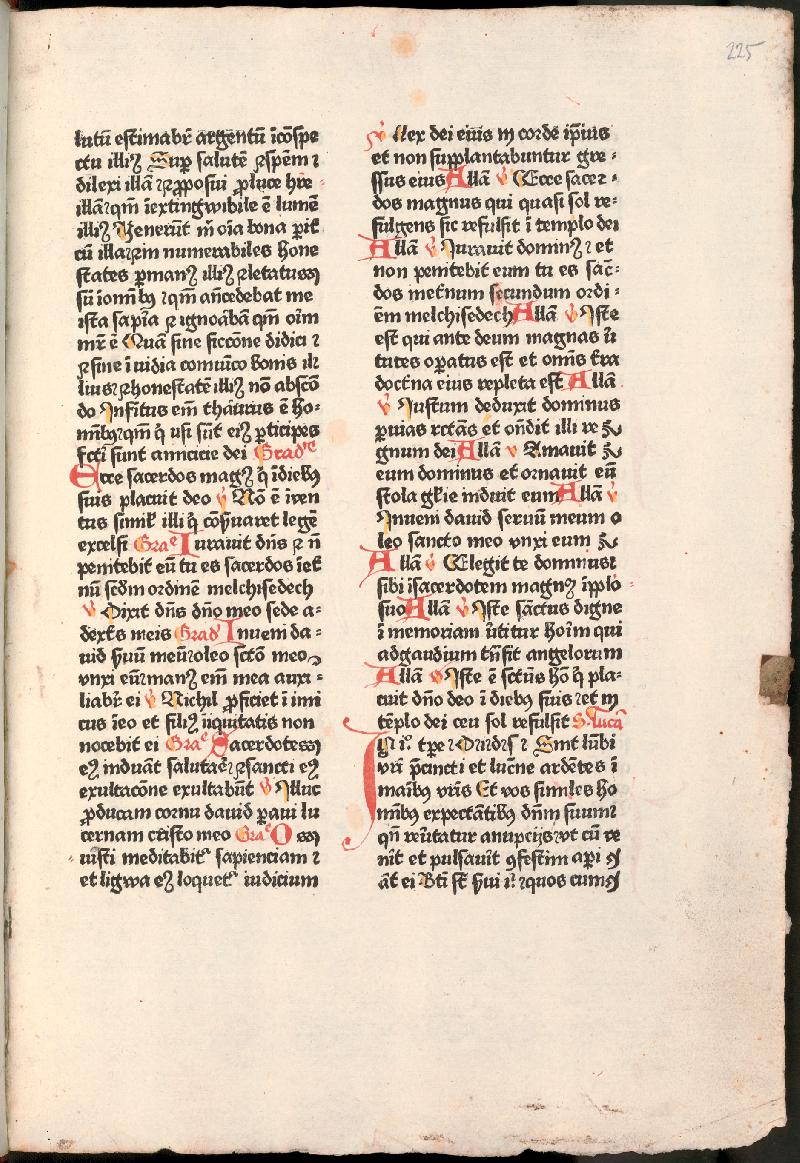 225
lutū estimabr̄ argentū ī cōspe
ctu illiꝰ Suꝑ salutē ⁊ spēm ⁊
dilexi illā ⁊ ꝓposui ꝓ luce hr̄e
illā ⁊ qm̄ īextingwibile ē lumē
illiꝰ Venerūt m̄ oīa bona ꝑit̄
cū illa ⁊ in numerabiles hone
states ꝑ manꝰ illiꝰ ⁊ letatus
sū ī omnibꝰ ⁊ qm̄ an̄cedebat me
ista sapīa ⁊ ignorabā qm̄ oīm
mr̄ ē Quā sine ficcōne didici ⁊
⁊ sine ī uidia comuīco bonis il
lius ⁊ honestatē illiꝰ nō abscō
do Infitus em̄ thaurus ē ho-
mībꝰ ⁊ qm̄ q̄ usi sūt eiꝰ ꝑticipes
fcti sunt amicicie dei Gradᵉ
Ecce sacerdos magꝰ q̄ ī diebꝰ
suis placuit deo ꝟ Nō ē īven
tus simil̄ illi q̄ cōẜuaret legē
excelsi Graᵉ Iurauit dn̄s ⁊ n̄
penitebit eū tu es sacerdos īet
nū scd̄m ordinē melchisedech
ꝟ Dixit dn̄s dn̄o meo sede a-
dext̄s meis Grad Inueni da-
uid ẜuū meū ⁊ oleo sctō meo
vnxi eū ⁊ manꝰ em̄ mea auxi-
liabr̄ ei ꝟ Nichil ꝓficiet ī imi
cus ī eo et filiꝰ īiquitatis non
nocebit ei Graᵉ Sacerdotes
eꝰ induāt salutaē ⁊ sancti eꝰ
exultacōne exultabūt ꝟ Illuc
ꝓducam cornu dauid ꝑaui lu
cernam cristo meo Graᵉ Os
iusti meditabit᷑ sapienciam ⁊
et ligwa eꝰ loquet᷑ iudicium
ꝟ Lex dei eiūs in corde ip̄ius
et non supplantabuntur gre-
ssus eius Allā ꝟ Ecce sacer-
dos magnus qui quasi sol re-
fulgens sic refulsit ī templo dei
Allā ꝟ Iurauit dominꝰ ⁊ et
non penitebit eum tu es sac̄-
dos met̄num secundum ordi-
ēm melchisedech Allā ꝟ Iste
est qui ante deum magnas ū
tutes oꝑatus est et omīs t̄ra
doct̄na eius repleta est Allā
ꝟ Iustum deduxit dominus
ꝑ uias rc̄tas et on̄dit illi re
gnum dei Allā ꝟ Amauit
eum dominus et ornauit eū
stola gl̄ie induit eum Allā ꝟ
Inueni dauid seruū meum o
leo sancto meo vnxi eum
Allā ꝟ Elegit te dominus
sibi ī sacerdotem magnꝰ ī pplo
suo Allā ꝟ Iste sāctus digne
ī memoriam ūtitur hoīm qui
ad gaudium tn̄sit angelorum
Allā ꝟ Iste ē sctūs hō q̄ pla-
cuit dn̄o deo ī diebꝰ suis ⁊ et in
tēplo dei ceu sol refulsit S. lucā
In i° tꝑe ⁊ Sint lūbi
vr̄i p̄cincti et luc̄ne ardētes ī
maībꝰ vr̄is Et vos similes ho
mībꝰ expectātibꝰ dn̄m suum
qn̄ reūtatur a nupcijs vt cū ve
nīt et pulsauīt ꝯfestim aꝑi
āt ei Bt̄i st̄ ẜui i⁊ quos cum